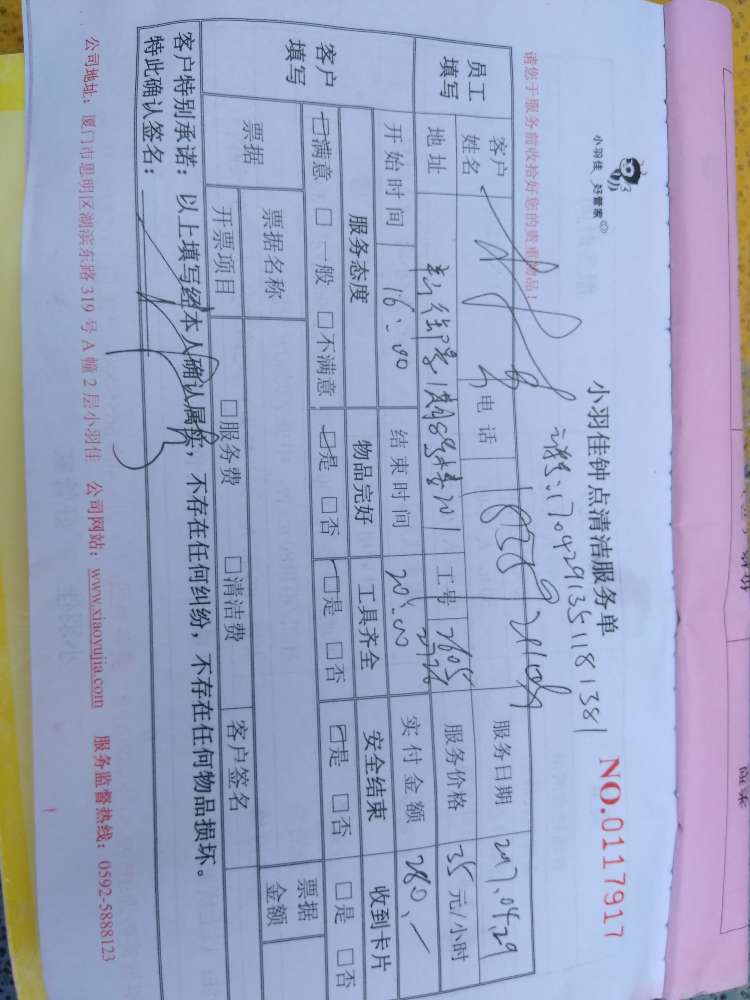 小羽佳 好管家
小羽佳钟点清洁服务单
NO.0117917
1704291351181381
请您于服务前收拾好您的贵重物品!
员工填写 客户姓名 电话 服务日期 2017.04.29
地址 工号 2605 2726 服务价格 35 元/小时
客户填写 开始时间 16:00 结束时间 20:00 实付金额 280.-
服务态度 物品完好 工具齐全 安全结束 收到卡片
☑满意 □一般 □不满意 ☑是 □否 ☑是 □否 ☑是 □否 □是 □否
票据 票据名称 票据金额
开票项目 □服务费 □清洁费 客户签名
客户特别承诺:以上填写经本人确认属实,不存在任何纠纷,不存在任何物品损坏。
特此确认签名:
公司地址:厦门市思明区湖滨东路 319 号 A 幢 2 层小羽佳 公司网站:www.xiaoyujia.com 服务监督热线:0592-5888123